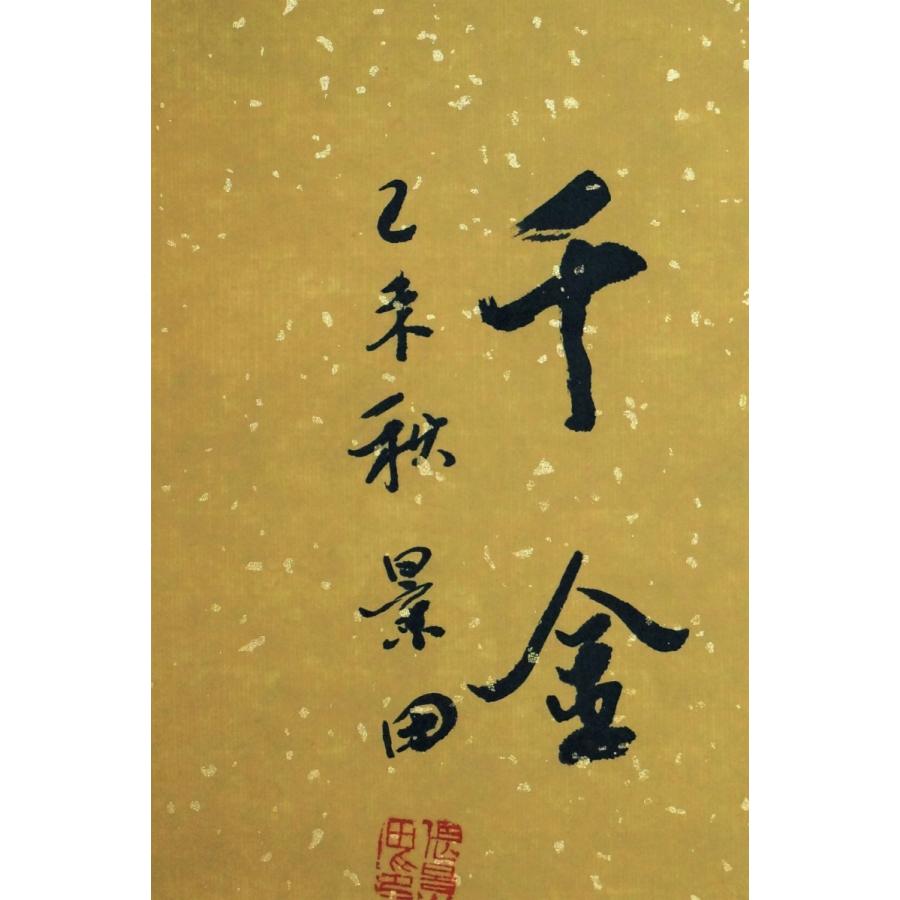 千金
乙未秋景田